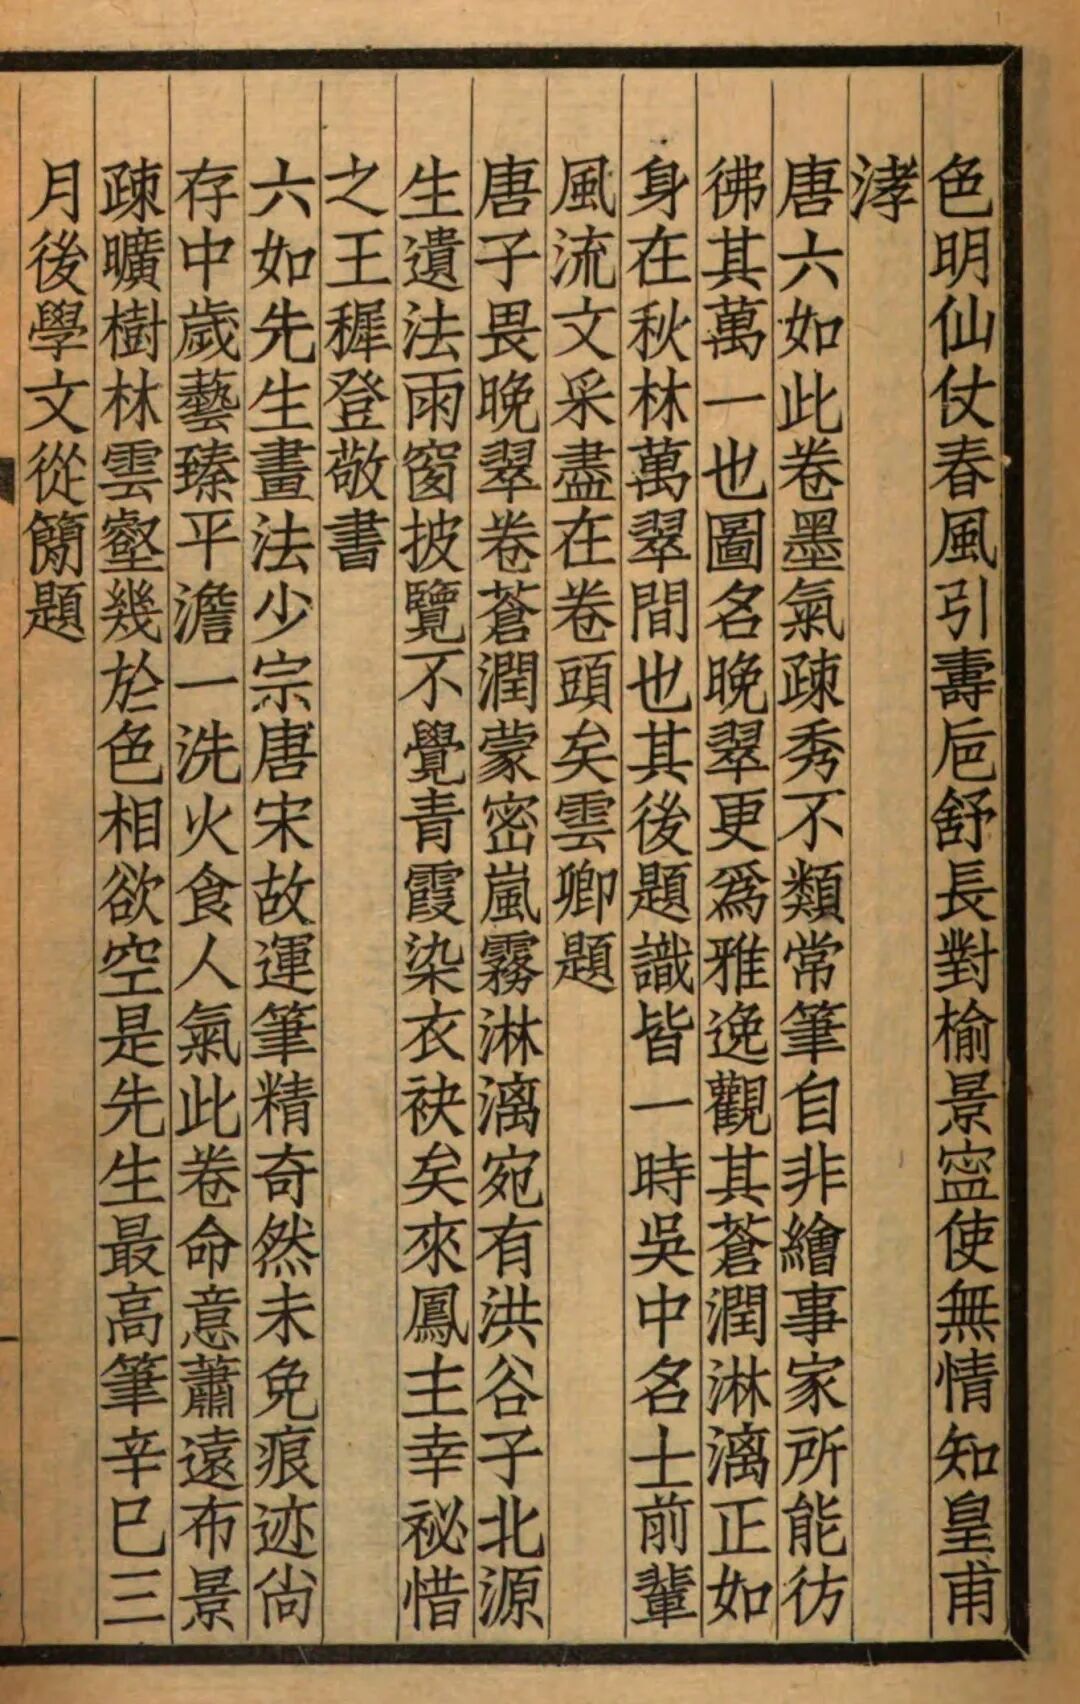 色明仙仗春風引壽巵舒長對榆景寍使無情知皇甫
涍
唐六如此卷墨氣疎秀不類常筆自非繪事家所能彷
彿其萬一也圖名晚翠更爲雅逸觀其蒼潤淋漓正如
身在秋林萬翠間也其後題識皆一時吳中名士前輩
風流文采盡在卷頭矣雲卿題
唐子畏晚翠卷蒼潤蒙密嵐霧淋漓宛有洪谷子北源
生遺法雨窗披覽不覺青霞染衣袂矣來鳳主幸祕惜
之王穉登敬書
六如先生畫法少宗唐宋故運筆精奇然未免痕迹尙
存中歲藝臻平澹一洗火食人氣此卷命意蕭遠布景
疎曠樹林雲壑幾於色相欲空是先生最高筆辛巳三
月後學文從簡題